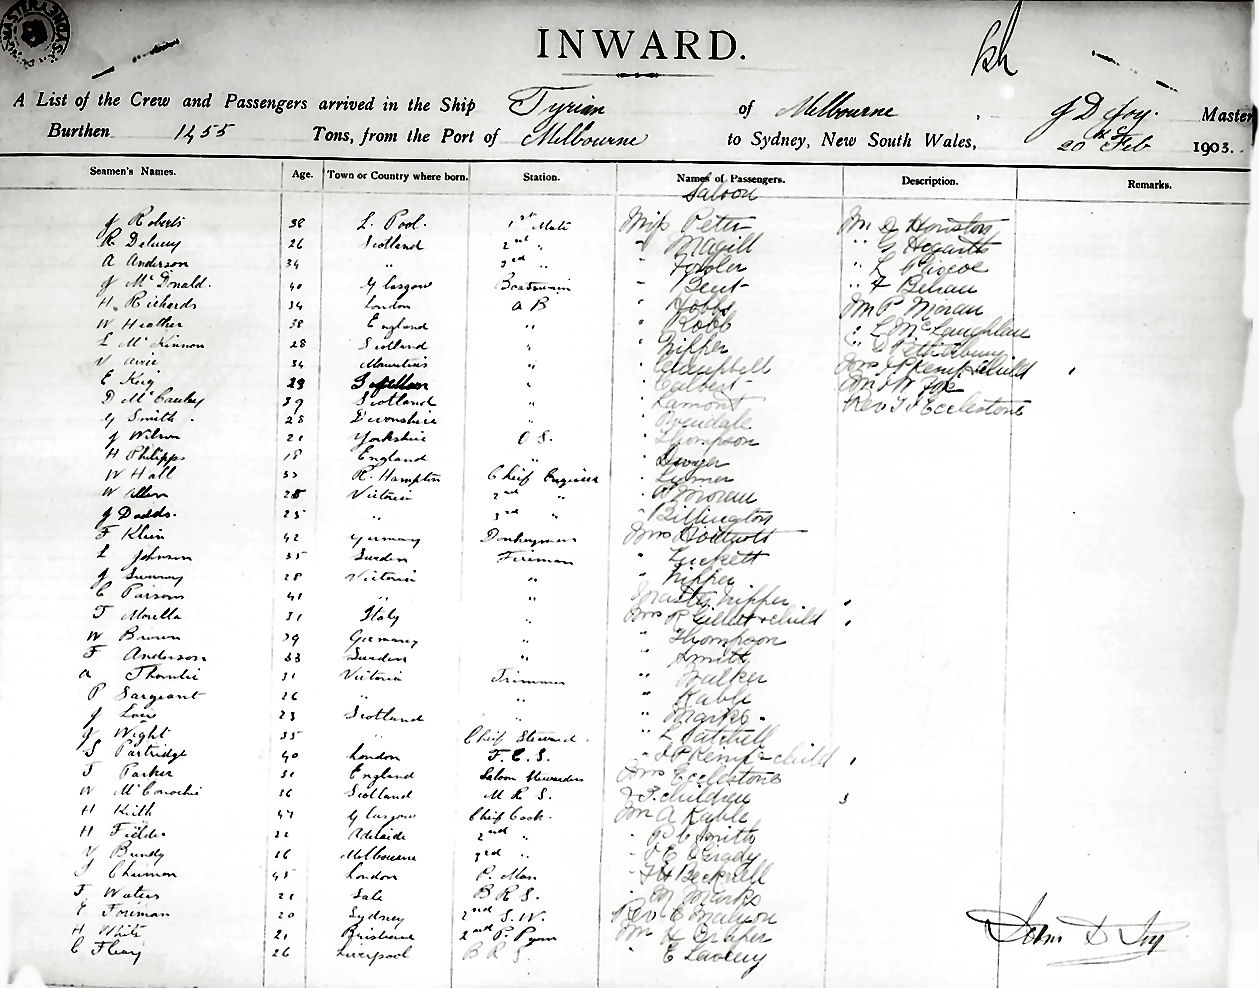 INWARD.
A List of the Crew and Passengers arrived in the Ship Tyrian of Melbourne J D Joy. Master
Burthen 1455 Tons, from the Port of Melbourne to Sydney, New South Wales, 20th Feb 1903.
Seamen's Names. Age. Town or Country where born. Station. Names of Passengers. Description. Remarks.
Saloon
J Roberts 38 L. Pool. 1st Mate Miss Peter Mr J Houston
R Delucey 26 Scotland 2nd " " Magill " G Hogarth
A Anderson 34 " 3rd " " Fowler " L
J McDonald. 40 Glasgow Boatswain " Bent " F Behan
H. Richards 34 London A B " Hobbs Mr P Moran
W Heather 38 England " " Robb " L McLaughlan
L McKinnon 28 Scotland " " Nipper "
34 Mauritius " " Campbell Mrs J P Kemp & child 1
E King 29 " " Calbert Mr W Fox
D McCauley 39 Scotland " " Lamont Rev J J Ecclestone
G Smith. 28 Devonshire " "
J Wilson 21 Yorkshire O S. " Thompson
H Philipps 18 England " " Dwyer
W Hall 33 R. Hampton Chief Engineer "
W Allen 28 Victoria 2nd " " W Moran
J Dodds. 25 " 3rd " " Billington
F Klein 42 Germany Donkeyman Mrs
L Johnson 35 Sweden Fireman " Luckett
J 28 Victoria " " Nipper
C Parsons 41 " " Master Nipper 1
T Morella 31 Italy " Mrs R Gilbert & child 1
W Brown 39 Germany " " Thompson
F Anderson 33 Sweden " " Smith
A 31 Victoria Trimmer " Walker
P Sargeant 26 " " " Kable
J 23 Scotland " " Marks.
J Wight 35 " Chief Steward. " L Satchell
S Partridge 40 London F. C. S. " J P Kemp & child 1
T Parker 31 England Saloon Stewardess Mrs Ecclestone
W McConochie 36 Scotland M R S. & 3 children 3
H Keith 47 Glasgow Chief Cook. Mr A Kable
H Fielder 22 Adelaide 2nd " " P C Smith
V Bundy 26 Melbourne 3rd " " O'Grady
45 London P. Man " F H Becknell
F. Waters 21 Sale B R S. " M Marks
E Foreman 20 Sydney 2nd S. W. Rev E
H White 21 Brisbane 2nd P. Mr H Draper
C Fleay 26 Liverpool B R S. " E Lavery
John D Joy